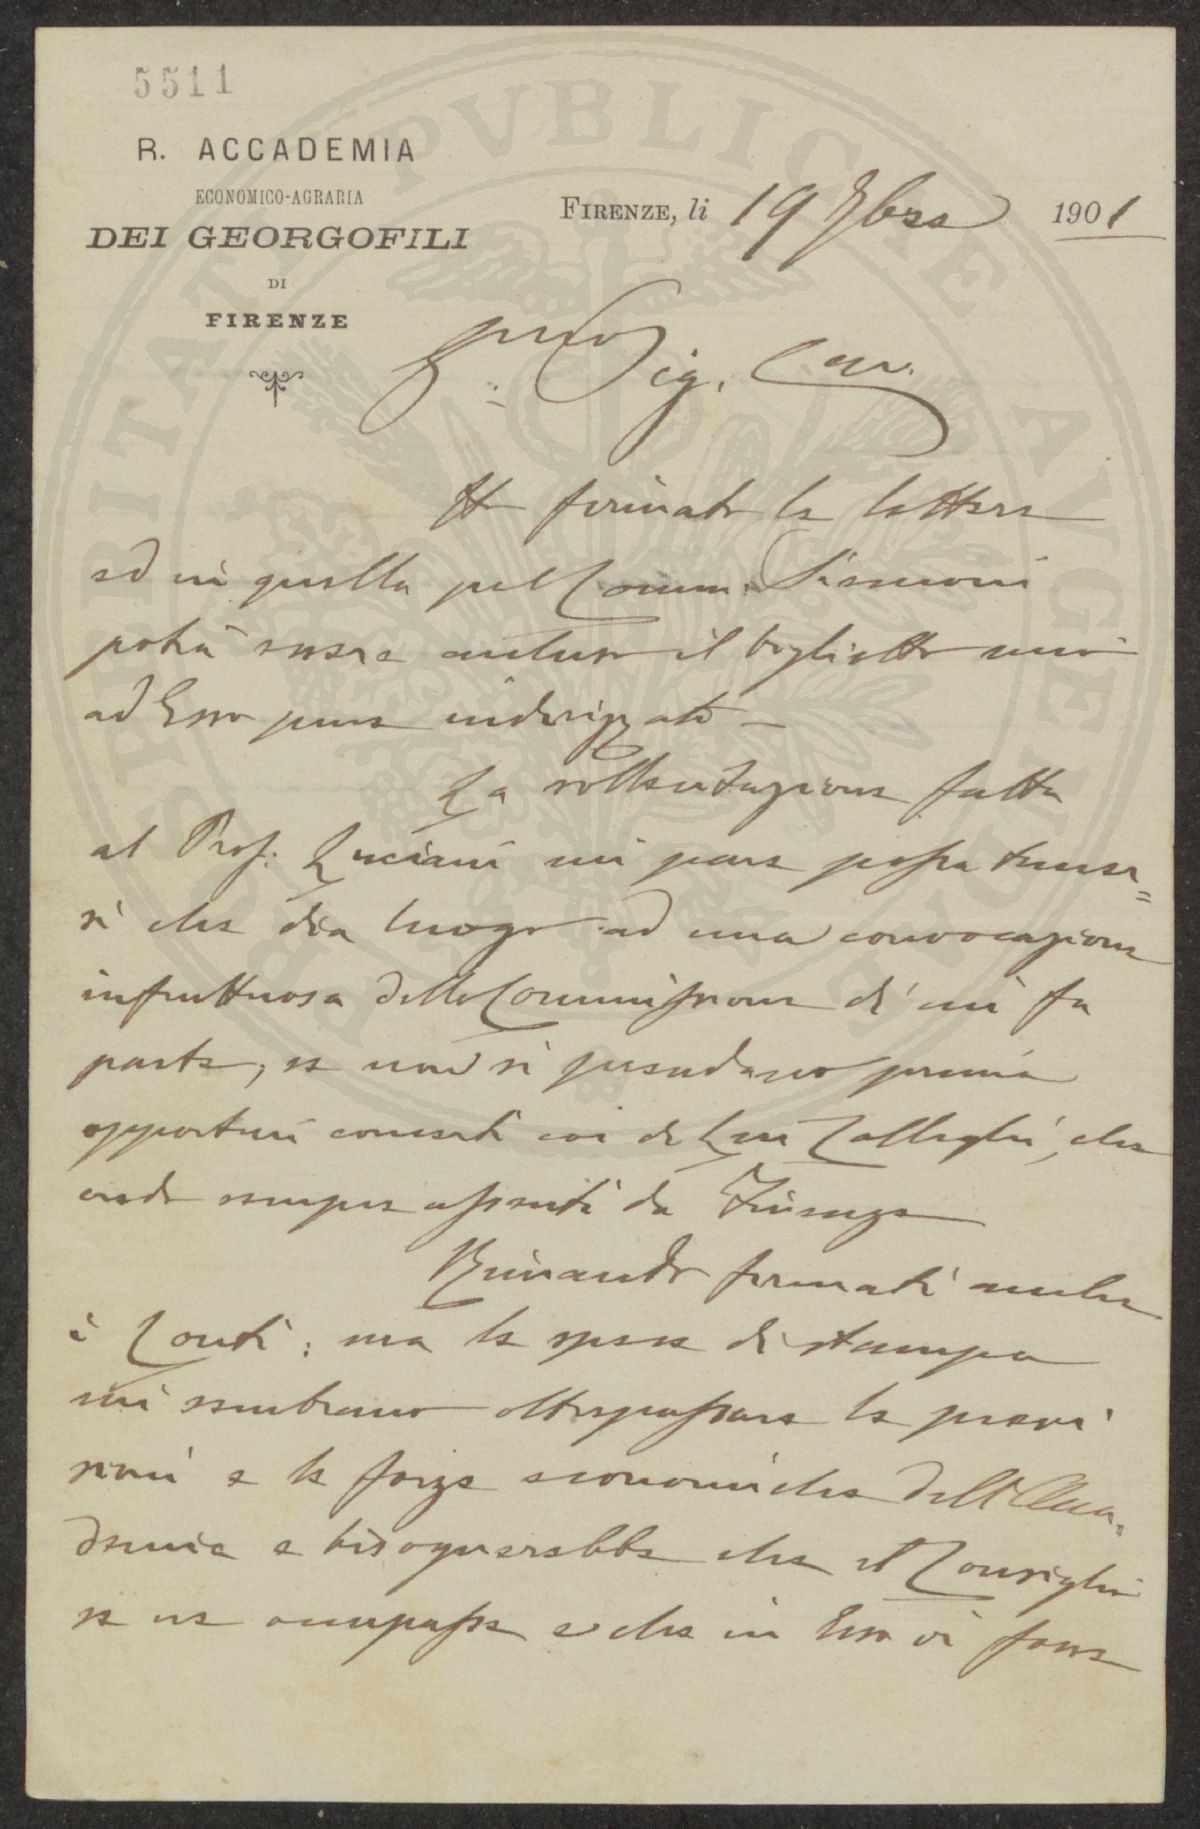 5511
R. ACCADEMIA
ECONOMICO-AGRARIA
DEI GEORGOFILI
DI
FIRENZE
PROSPERITATI PVBLICAE AVGENDAE
FIRENZE, li 19 1901
Sig. Cav.
Ho firmato le lettere
ed in quella pel Comm. Sismoni
potrà essere incluso il biglietto mio
ad Esso pure indirizzato –
La sollecitazione fatta
al Prof: Luciani mi pare possa temer=
si che dia luogo ad una convocazione
infruttuosa della Commissione di cui fa
parte, se non si prendano prima
opportuni concerti coi di Lui Colleghi, che
credo sempre assenti da Firenze
Rimando firmati anche
i Conti: ma le spese di stampa
mi sembrano oltrepassare le previ
sioni e le forze economiche dell'Acca=
demia e bisognerebbe che il Consiglio
se ne occupasse e che in Esso vi fosse